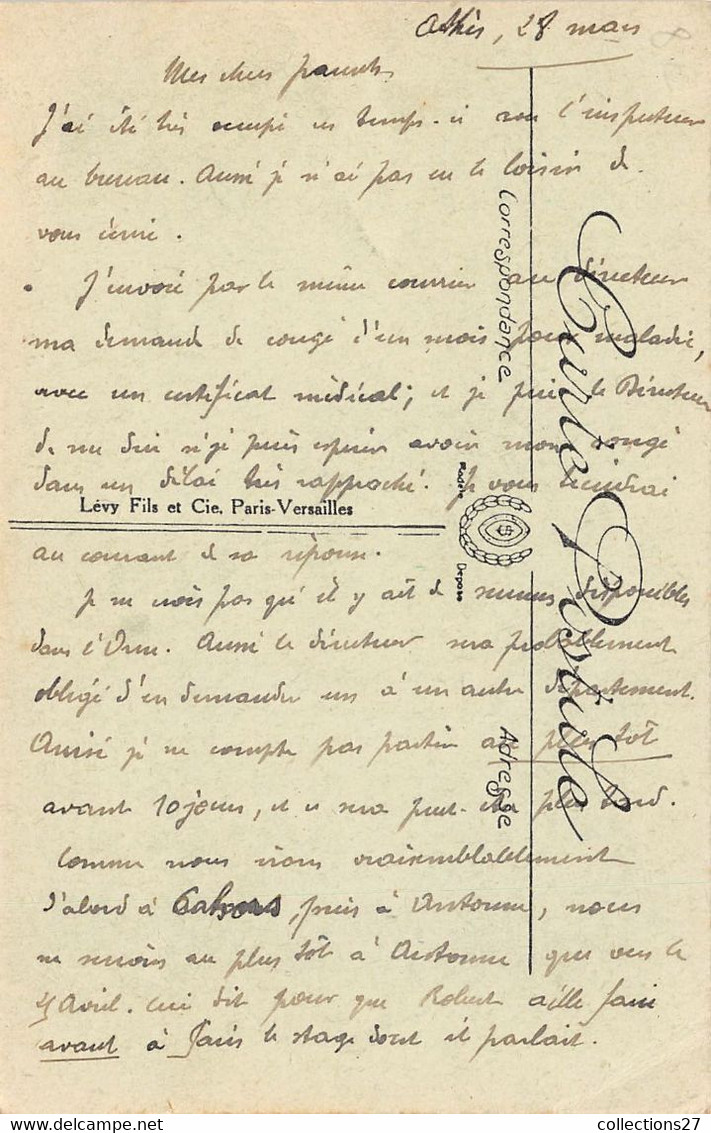 Athis, 28 mars
Mes chers parents
J'ai été très occupé ces temps-ci avec l'inspecteur
au bureau. Aussi je n'ai pas eu le loisir de
vous écrire.
J'envoie par le même courrier au directeur
ma demande de congé d'un mois pour maladie,
avec un certificat médical; et je prie le Directeur
de me dire si je puis espérer avoir mon congé
dans un délai très rapproché. Je vous tiendrai
au courant de sa réponse.
Je ne crois pas qu'il y ait de disponibles
dans l'Orne. Aussi le directeur sera probablement
obligé d'en demander un à un autre département.
Aussi je ne compte pas partir au plus tôt
avant 10 jours, et ce sera peut-être plus tard.
Comme nous irons vraisemblablement
d'abord à Cahors, puis à , nous
ne serons au plus tôt à que vers le
Avril. Ceci dit pour que Robert aille faire
avant à Paris le stage dont il parlait.
Carte Postale
Correspondance
Adresse
Modèle
Déposé
Lévy Fils et Cie, Paris-Versailles
collections27